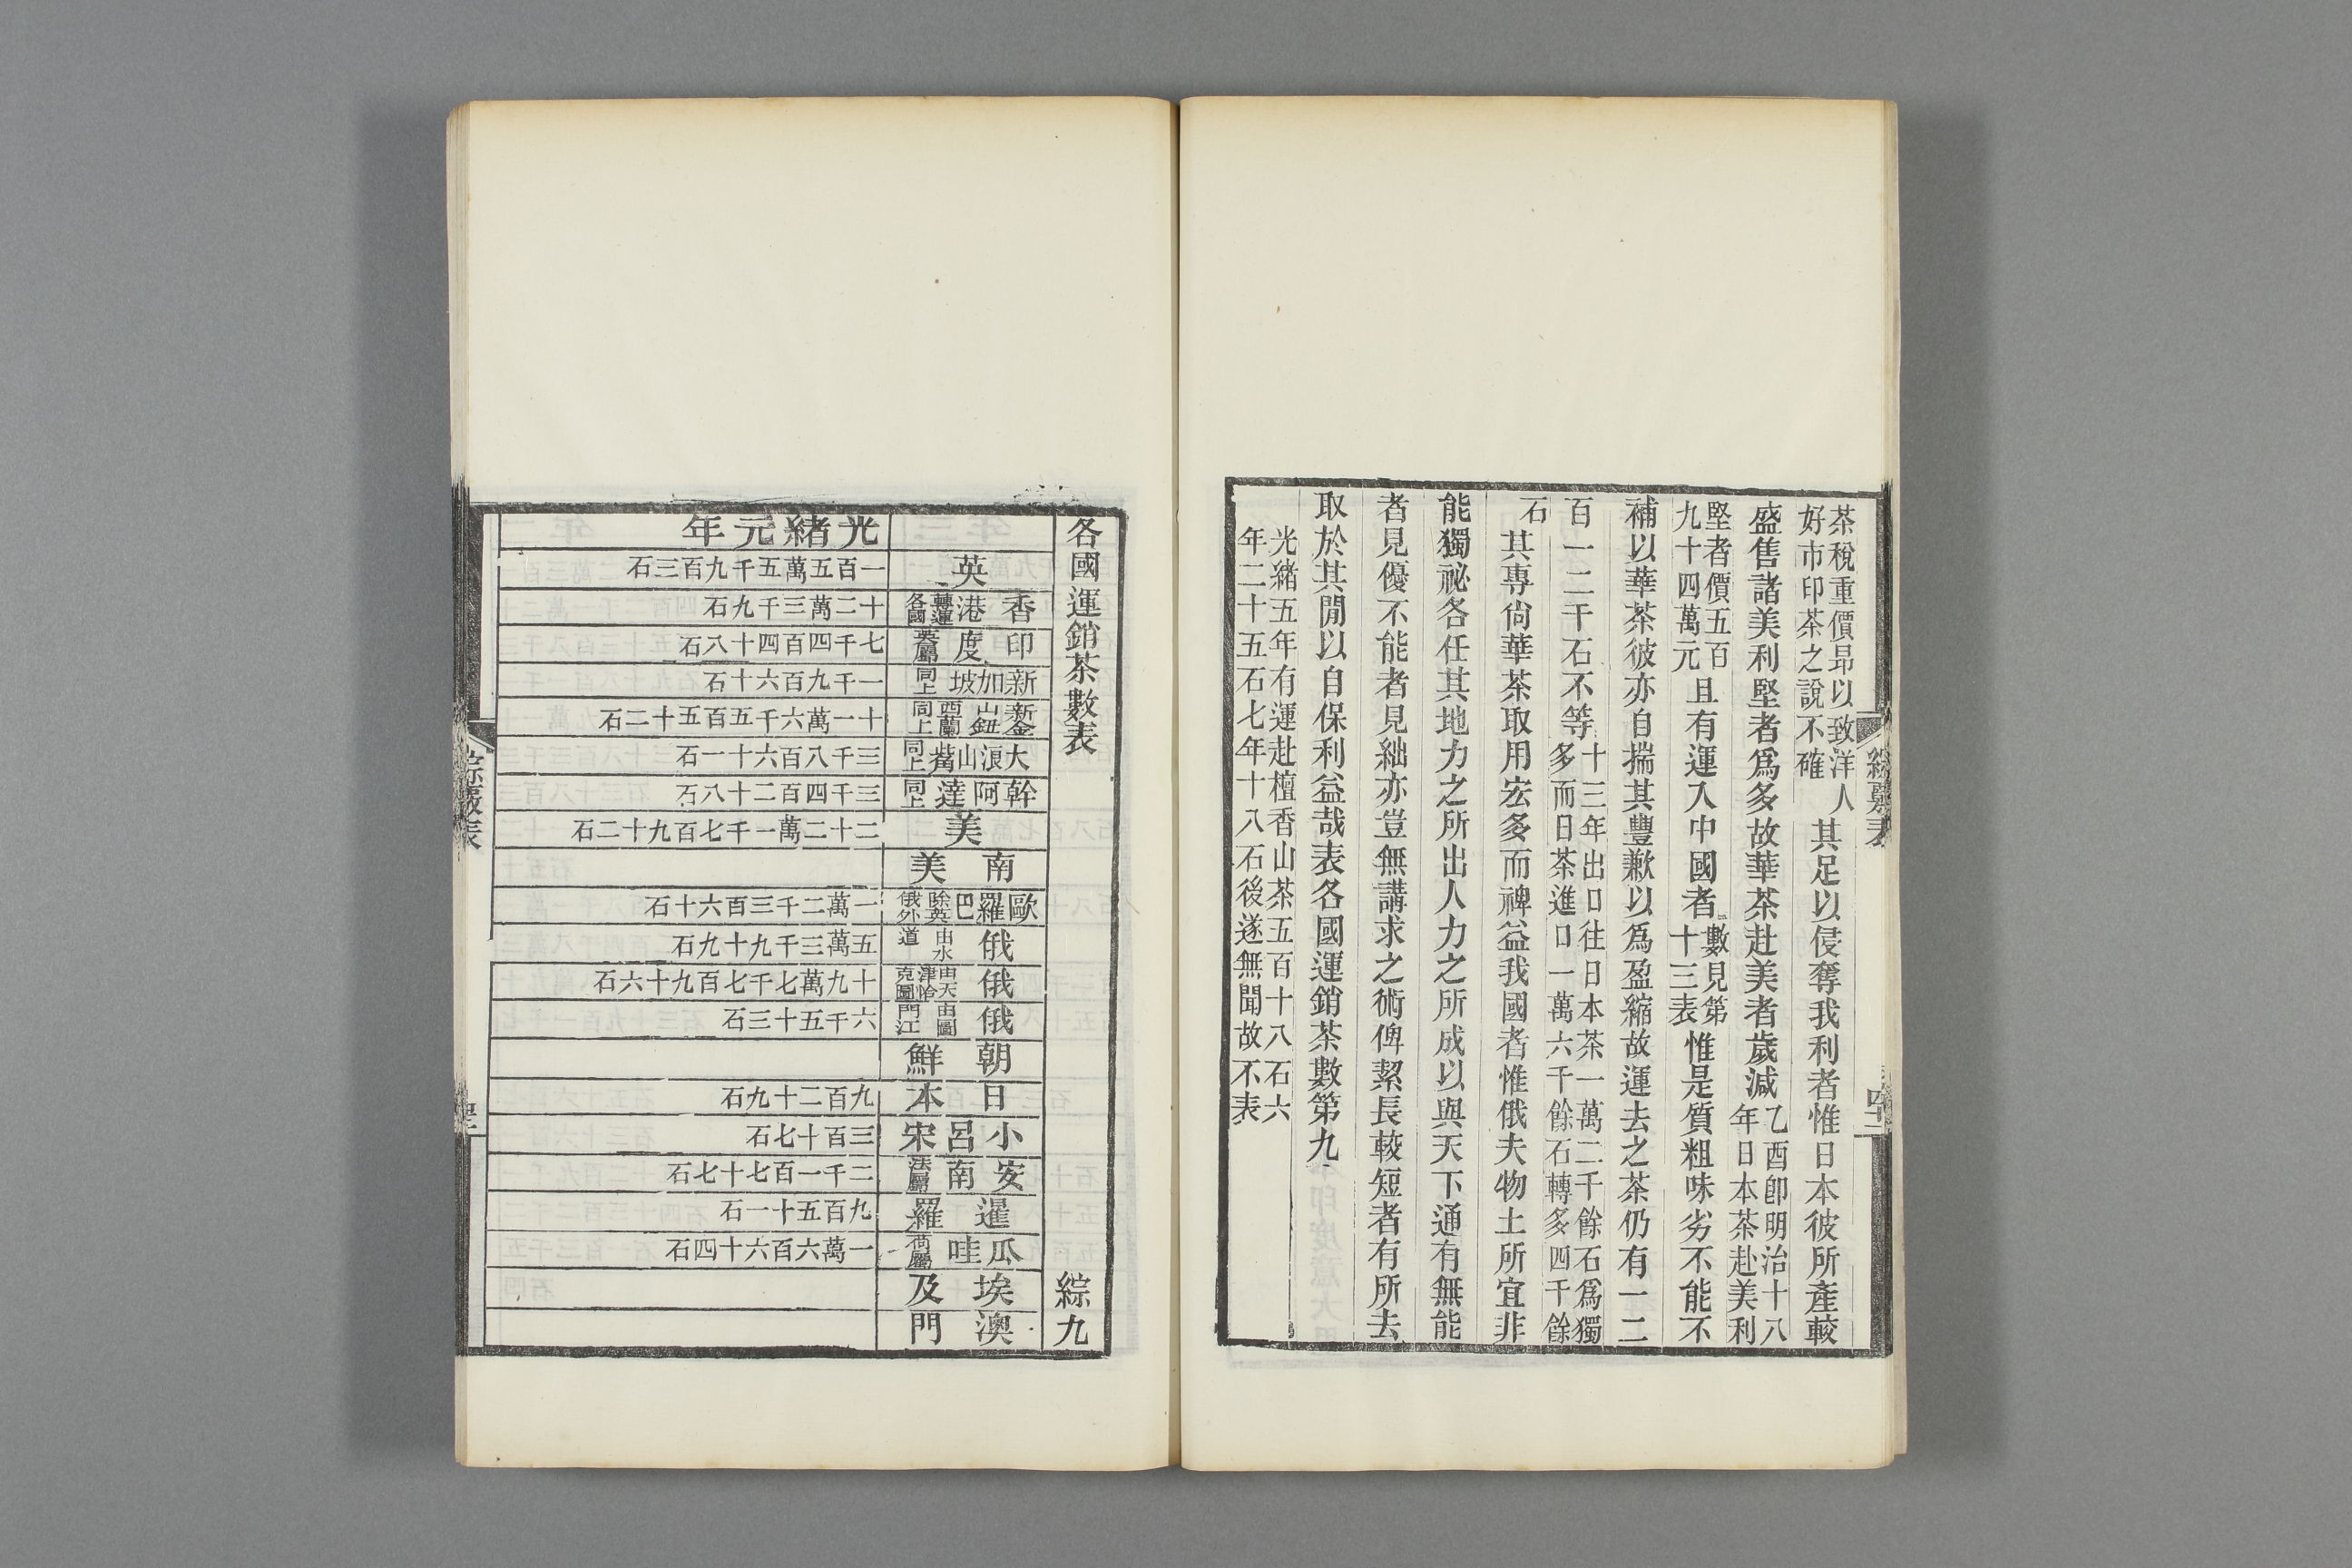 茶稅重價昻以致洋人
好市印茶之說不確
其足以侵奪我利者惟日本彼所產較
盛售諸美利堅者爲多故華茶赴美者歲減
乙酉卽明治十八
年日本茶赴美利
堅者價五百
九十四萬元
且有運入中國者
數見第
十三表
惟是質粗味劣不能不
補以華茶彼亦自揣其豐歉以爲盈縮故運去之茶仍有一二
百一二千石不等
十三年出口往日本茶一萬二千餘石爲獨
多而日茶進口一萬六千餘石轉多四千餘
石
其專尙華茶取用宏多而裨益我國者惟俄夫物土所宜非
能獨祕各任其地力之所出人力之所成以與天下通有無能
者見優不能者見絀亦豈無講求之術俾絜長較短者有所去
取於其閒以自保利益哉表各國運銷茶數第九
光緖五年有運赴檀香山茶五百十八石六
年二十五石七年十八石後遂無聞故不表
各國運銷茶數表
綜九
光緖元年
英
一百五萬五千九百三石
香港
轉運
各國
十二萬三千九石
印度
英屬
七千四百四十八石
新加坡
同上
一千九百六十石
新金山鈕西蘭
同上
十一萬六千五百五十二石
大浪山嘴
同上
三千八百六十一石
幹阿達
同上
三千四百二十八石
美
二十二萬一千七百九十二石
南美
歐羅巴
除英
俄外
一萬二千三百六十石
俄
由水
道
五萬三千九十九石
俄
由天
津恰
克圖
十九萬七千七百九十六石
俄
由圖
門江
六千五十三石
朝鮮
日本
九百二十九石
小呂宋
三百十七石
安南
法屬
二千一百七十七石
暹羅
九百五十一石
瓜哇
荷屬
一萬六百六十四石
埃及
澳門